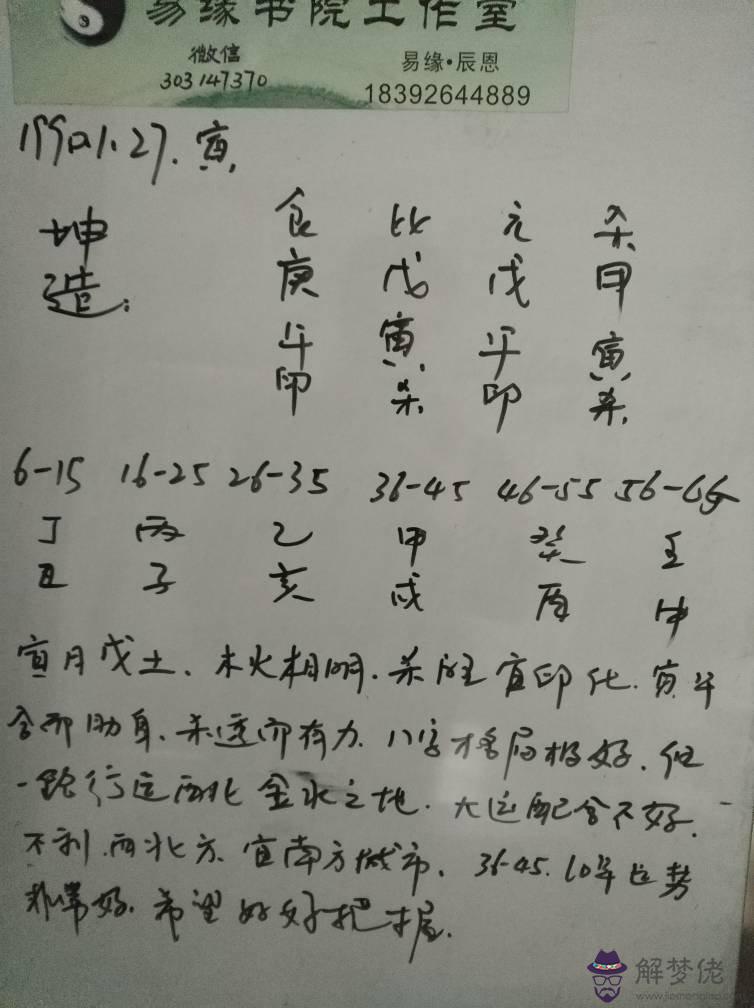 易缘书院工作室
微信
303147370
易缘·辰恩
18392644889
1990.1.27.寅.
坤造:
食 比 元 杀
庚 戊 戊 甲
午 寅 午 寅
印 杀 印 杀
6-15 16-25 26-35 36-45 46-55 56-65
丁 丙 乙 甲 癸 壬
丑 子 亥 戌 酉 申
寅月戊土、木火相明.杀旺宜印化.寅午
合而助身、杀透而有力.八字格局极好.但
一路行运西北金水之地.大运配合不好.
不利.西北方.宜南方城市.36-45.10年运势
非常好.希望好好把握.
解梦佬
www.jiemenglao.com